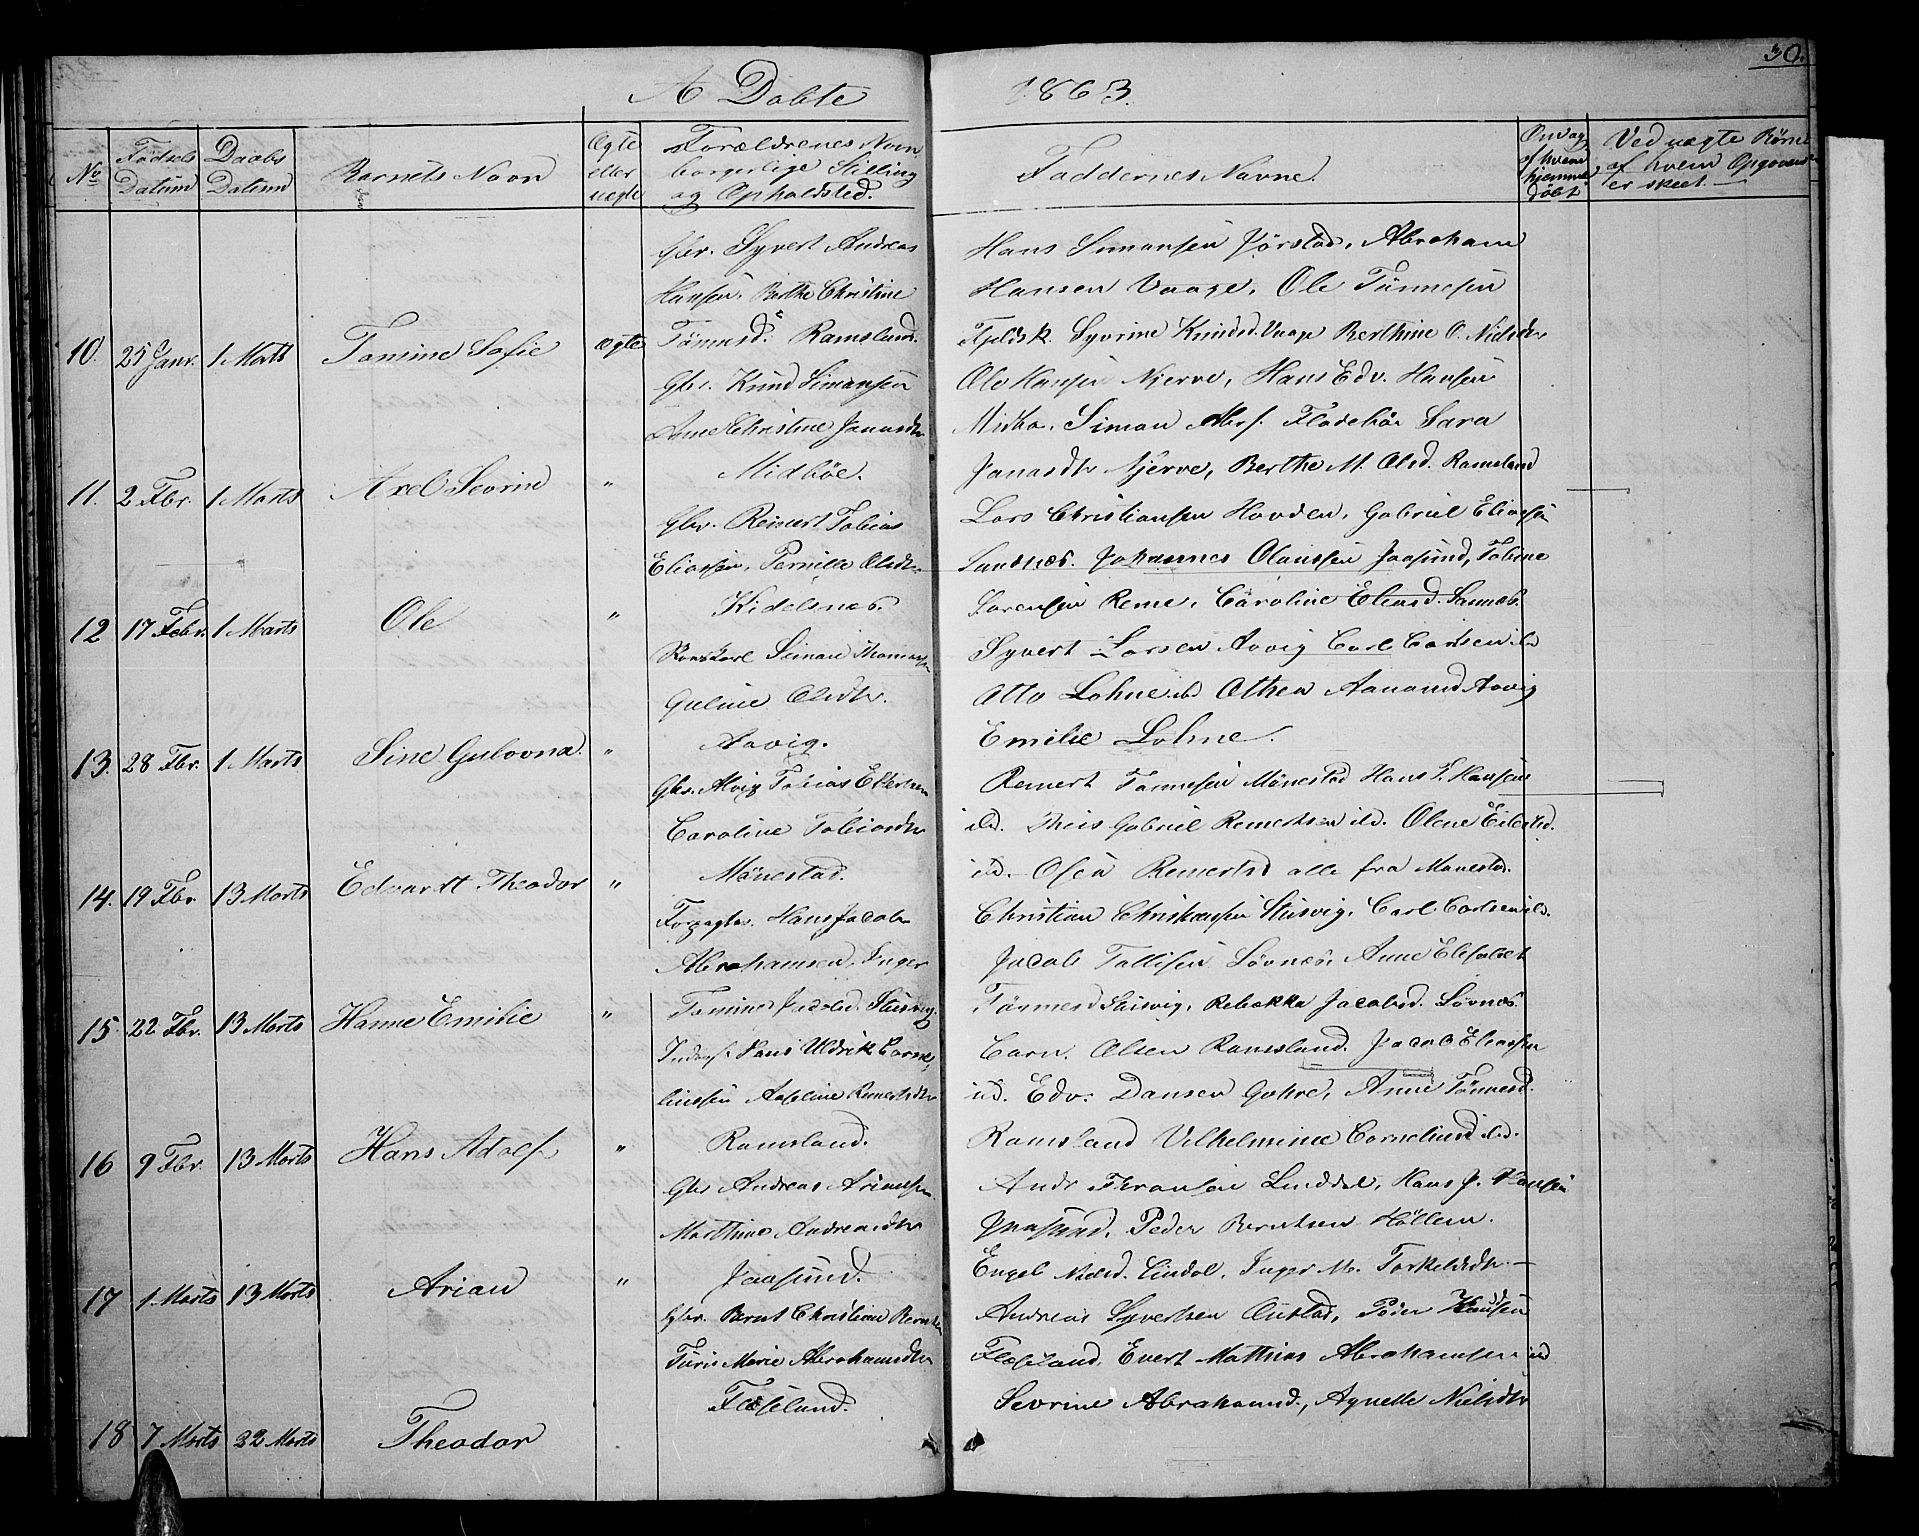 30.
A Døbte 1863.
No
Fødsels Datum
Daabs Datum
Barnets Navn
Ægte eller uægte
Forældrenes Navn borgerlige Stilling og Opholdsted.
Faddernes Navne.
Om og af hvem hjemmedøbt
Ved uægte Børn af hvem Opgivende er skeet
10. 25 Janr. 1 Marts Tomine Sofie ægte
Gbr. Syvert Andreas
Hansen, Berthe Christine
Tønnesd. Ramsland.
Hans Simonsen Jørstad, Abraham
Hansen Vaage, Ole Tønnesen
Syvrine Knudsd. Vaage Berthine O. Nielsdtr
11. 2 Fbr. 1 Marts Axel Sevrin "
Gbr. Knud Simonsen
Anne Christine Jonasdtr
Midbøe.
Ole Hansen Njerve, Hans Edv. Hansen
Midbø, Simon Abrs. Flødebø Sara
Jonasdtr Njerve, Berthe M. Olsd. Ramsland
12 17 Febr. 1 Marts Ole "
Gbr. Reinert Tobias
Eliassen, Pernille Olsdtr
Kidelsnes.
Lars Christiansen Hovden, Gabriel Eliassen
Sandnæs. Johannes Olaussen Jaasund, Tobine
Sørensen Reme, Caroline Eliasd. Sannæs.
13. 28 Fbr. 1 Marts Sine Gulovna. "
Simon Thomassen
Guline Olsdtr.
Aavig.
Syvert Larsen Aavig Carl Carlsen ibd
Otto Lohne ibd Othen Aanonsd Aavig
Emilie Lohne.
14. 19 Fbr. 13 Marts Edvardt Theodor "
Gbr. Alvig Tobias Eilertsen
Caroline Tobiasdtr
Mønestad.
Reinert Tønnesen Mønestad Hans E. Hansen
ibd. Theis Gabriel Reinertsen ibd. Olene Eilertsd.
ibd. Osen Reinertsd alle fra Mønestad.
15. 22 Fbr. 13 Marts Hanne Emilie "
Forpagter Hans Jacob
Abrahamsen, Inger
Tomine Jacobsd. Stusvig.
Christian Christiansen Stusvig, Carl Carlsen ibd.
Jacob Tollisen Løvnæs, Anne Elisabet
Tønnesd Stusvig, Rebekka Jacobsd. Løvnæs.
16 9 Fbr. 13 Marts Hans Adolf "
Inders. Hans Uldrik Corne-
liussen Aaseline Reinertsdtr
Ramsland.
Corn. Olsen Ramsland. Jacob Eliassen
ibd. Edv. Dansen Gahre, Anne Tønnesd.
Ramsland Vilhelmine Corneliusd ibd.
17 1 Marts 13 Marts Arian "
Gbr Andreas Arinessen
Marthine Andreasdtr
Jaasund.
Andr Fransen Linddal, Hans J. Hansen
Jaasund, Peder Berntsen Høllen.
Engel Nielsd. Lindal, Inger M. Torkelsdtr. —
18 7 Marts 22 Marts Theodor
Gbr. Bernt Christian Berntsen
Turis Marie Abrahamsdtr
Fløseland.
Andreas Syvertsen Østad, Peder Knudsen
Fløseland, Evert Mathias Abrahamsen ibd
Sevrine Abrahamsd., Agnette Nielsdtr